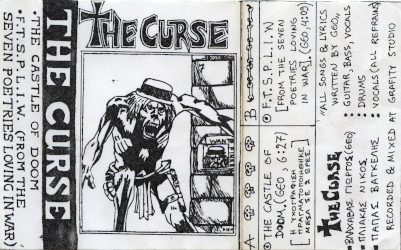 THE CURSE
• THE CASTLE OF DOOM
• F.T.S.P.L.I.W. (FROM THE
SEVEN POETRIES LOVING IN WAR)
THE CURSE
WANT
A
THE CASTLE OF
DOOM (GEO, 6:27)
Η ΗΧΟΓΡΑΦΗΣΗ
ΠΡΑΓΜΑΤΟΠΟΙΗΘΗΚΕ
ΜΕΣΑ ΣΕ 5 ΩΡΕΣ
B
F.T.S.P.L.I.W
(FROM THE SEVEN
POETRIES LOVING
IN WAR). (GEO, 4:09)
"ALL SONGS & LYRICS
WRITTEN BY GEO,
GUITAR, BASS, VOCALS
: DRUMS
: VOCALS (ALL REFRAINS)
RECORDED & MIXED AT GRAFITY STUDIO
THE CURSE
ΓΙΩΡΓΟΣ (GEO)
ΝΙΚΟΣ
ΠΑΠΑΣ ΒΑΓΓΕΛΗΣ